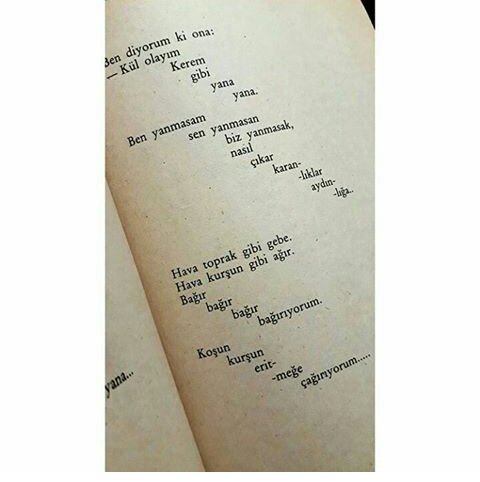 Ben diyorum ki ona:
— Kül olayım
Kerem
gibi
yana
yana.
Ben yanmasam
sen yanmasan
biz yanmasak,
nasıl
çıkar
karan-
-lıklar
aydın-
-lığa..
Hava toprak gibi gebe.
Hava kurşun gibi ağır.
Bağır
bağır
bağır
bağırıyorum.
Koşun
kurşun
erit-
-meğe
çağırıyorum.....
yana...